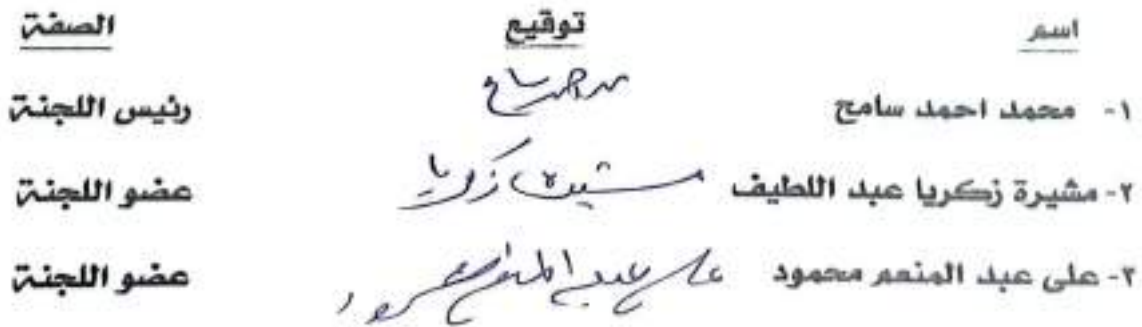 اسم توقيع الصفة
١- محمد احمد سامح رئيس اللجنة
٢- مشيرة زكريا عبد اللطيف مشيرة زكريا عضو اللجنة
٣- على عبد المنعم محمود على عبد المنعم محمود عضو اللجنة